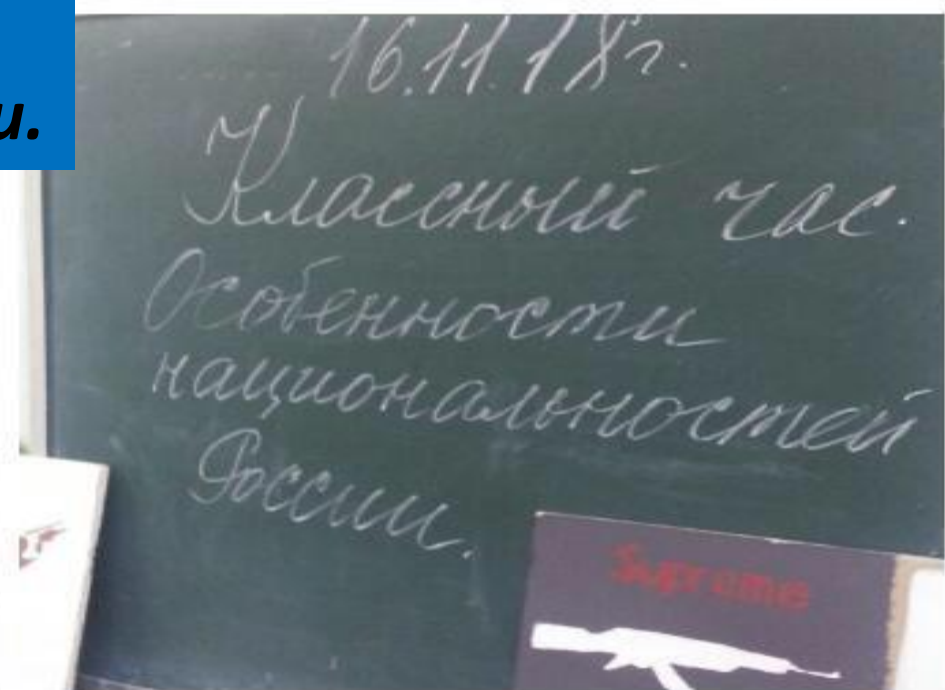 и.
16.11.18г.
Классный час.
Особенности
национальностей
России.
Supreme